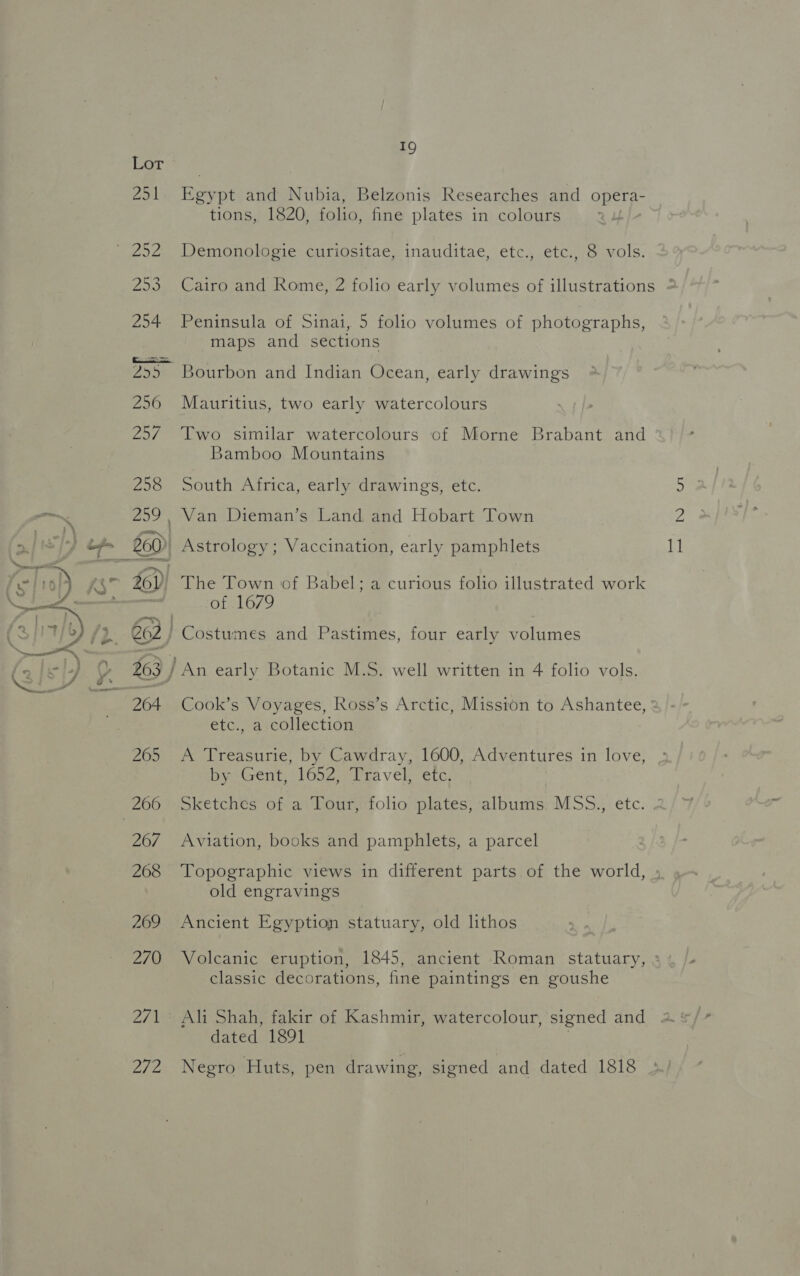 19
Lot
251 Egypt and Nubia, Belzonis Researches and opera-
tions, 1820, folio, fine plates in colours
252 Demonologie curiositae, inauditae, etc., etc., 8 vols.
253 Cairo and Rome, 2 folio early volumes of illustrations
254 Peninsula of Sinai, 5 folio volumes of photographs,
maps and sections
255 Bourbon and Indian Ocean, early drawings
256 Mauritius, two early watercolours
257 Two similar watercolours of Morne Brabant and
Bamboo Mountains
258 South Africa, early drawings, etc. 5
259 Van Dieman's Land and Hobart Town 2
260 Astrology; Vaccination, early pamphlets 11
261 The Town of Babel; a curious folio illustrated work
of 1679
262 Costumes and Pastimes, four early volumes
263 An early Botanic M.S. well written in 4 folio vols.
264 Cook's Voyages, Ross's Arctic, Mission to Ashantee,
etc., a collection
265 A Treasurie, by Cawdray, 1600, Adventures in love,
by Gent, 1652, Travel, etc.
266 Sketches of a Tour, folio plates, albums MSS., etc.
267 Aviation, books and pamphlets, a parcel
268 Topographic views in different parts of the world,
old engravings
269 Ancient Egyption statuary, old lithos
270 Volcanic eruption, 1845, ancient Roman statuary,
classic decorations, fine paintings en goushe
271 Ali Shah, fakir of Kashmir, watercolour, signed and
dated 1891
272 Negro Huts, pen drawing, signed and dated 1818